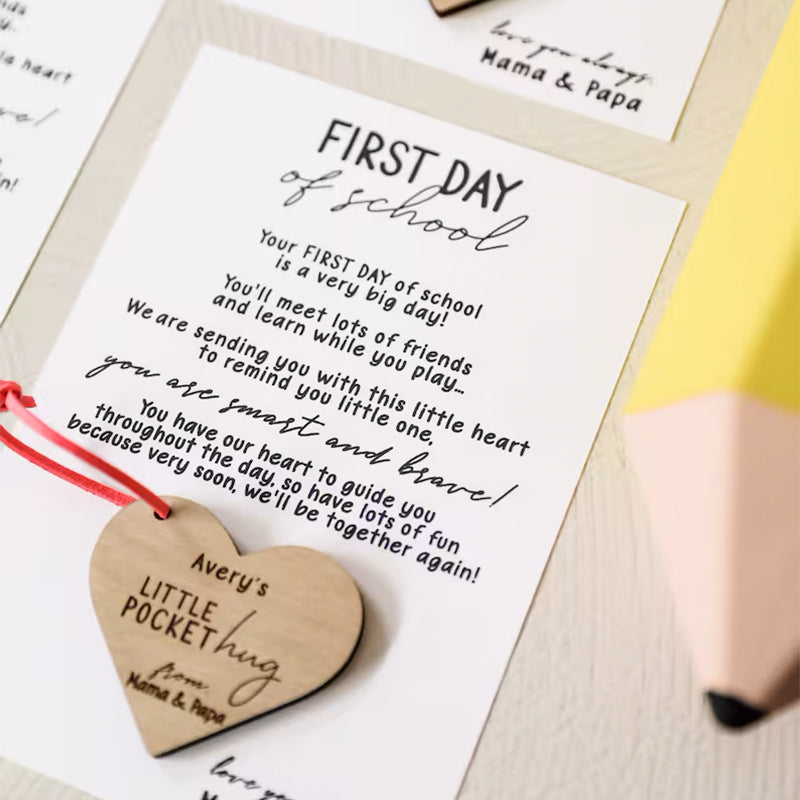 la heart
love you always,
Mama & Papa
FIRST DAY
of school
Your FIRST DAY of school
is a very big day!
You'll meet lots of friends
and learn while you play...
We are sending you with this little heart
to remind you little one,
you are smart and brave!
You have our heart to guide you
throughout the day, so have lots of fun
because very soon, we'll be together again!
Avery's
LITTLE
POCKET hug
from
Mama & Papa
love